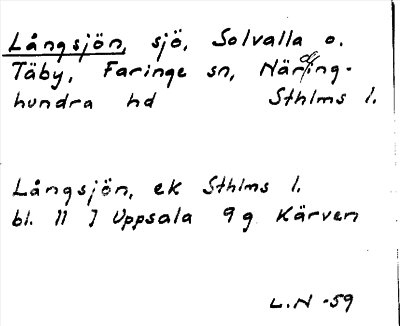 Långsjön, sjö, Solvalla o.
Täby, Faringe sn, Närding-
hundra hd Sthlms l.
Långsjön, ek Sthlms l.
bl. 11 J Uppsala 9g Kärven
L.N -59